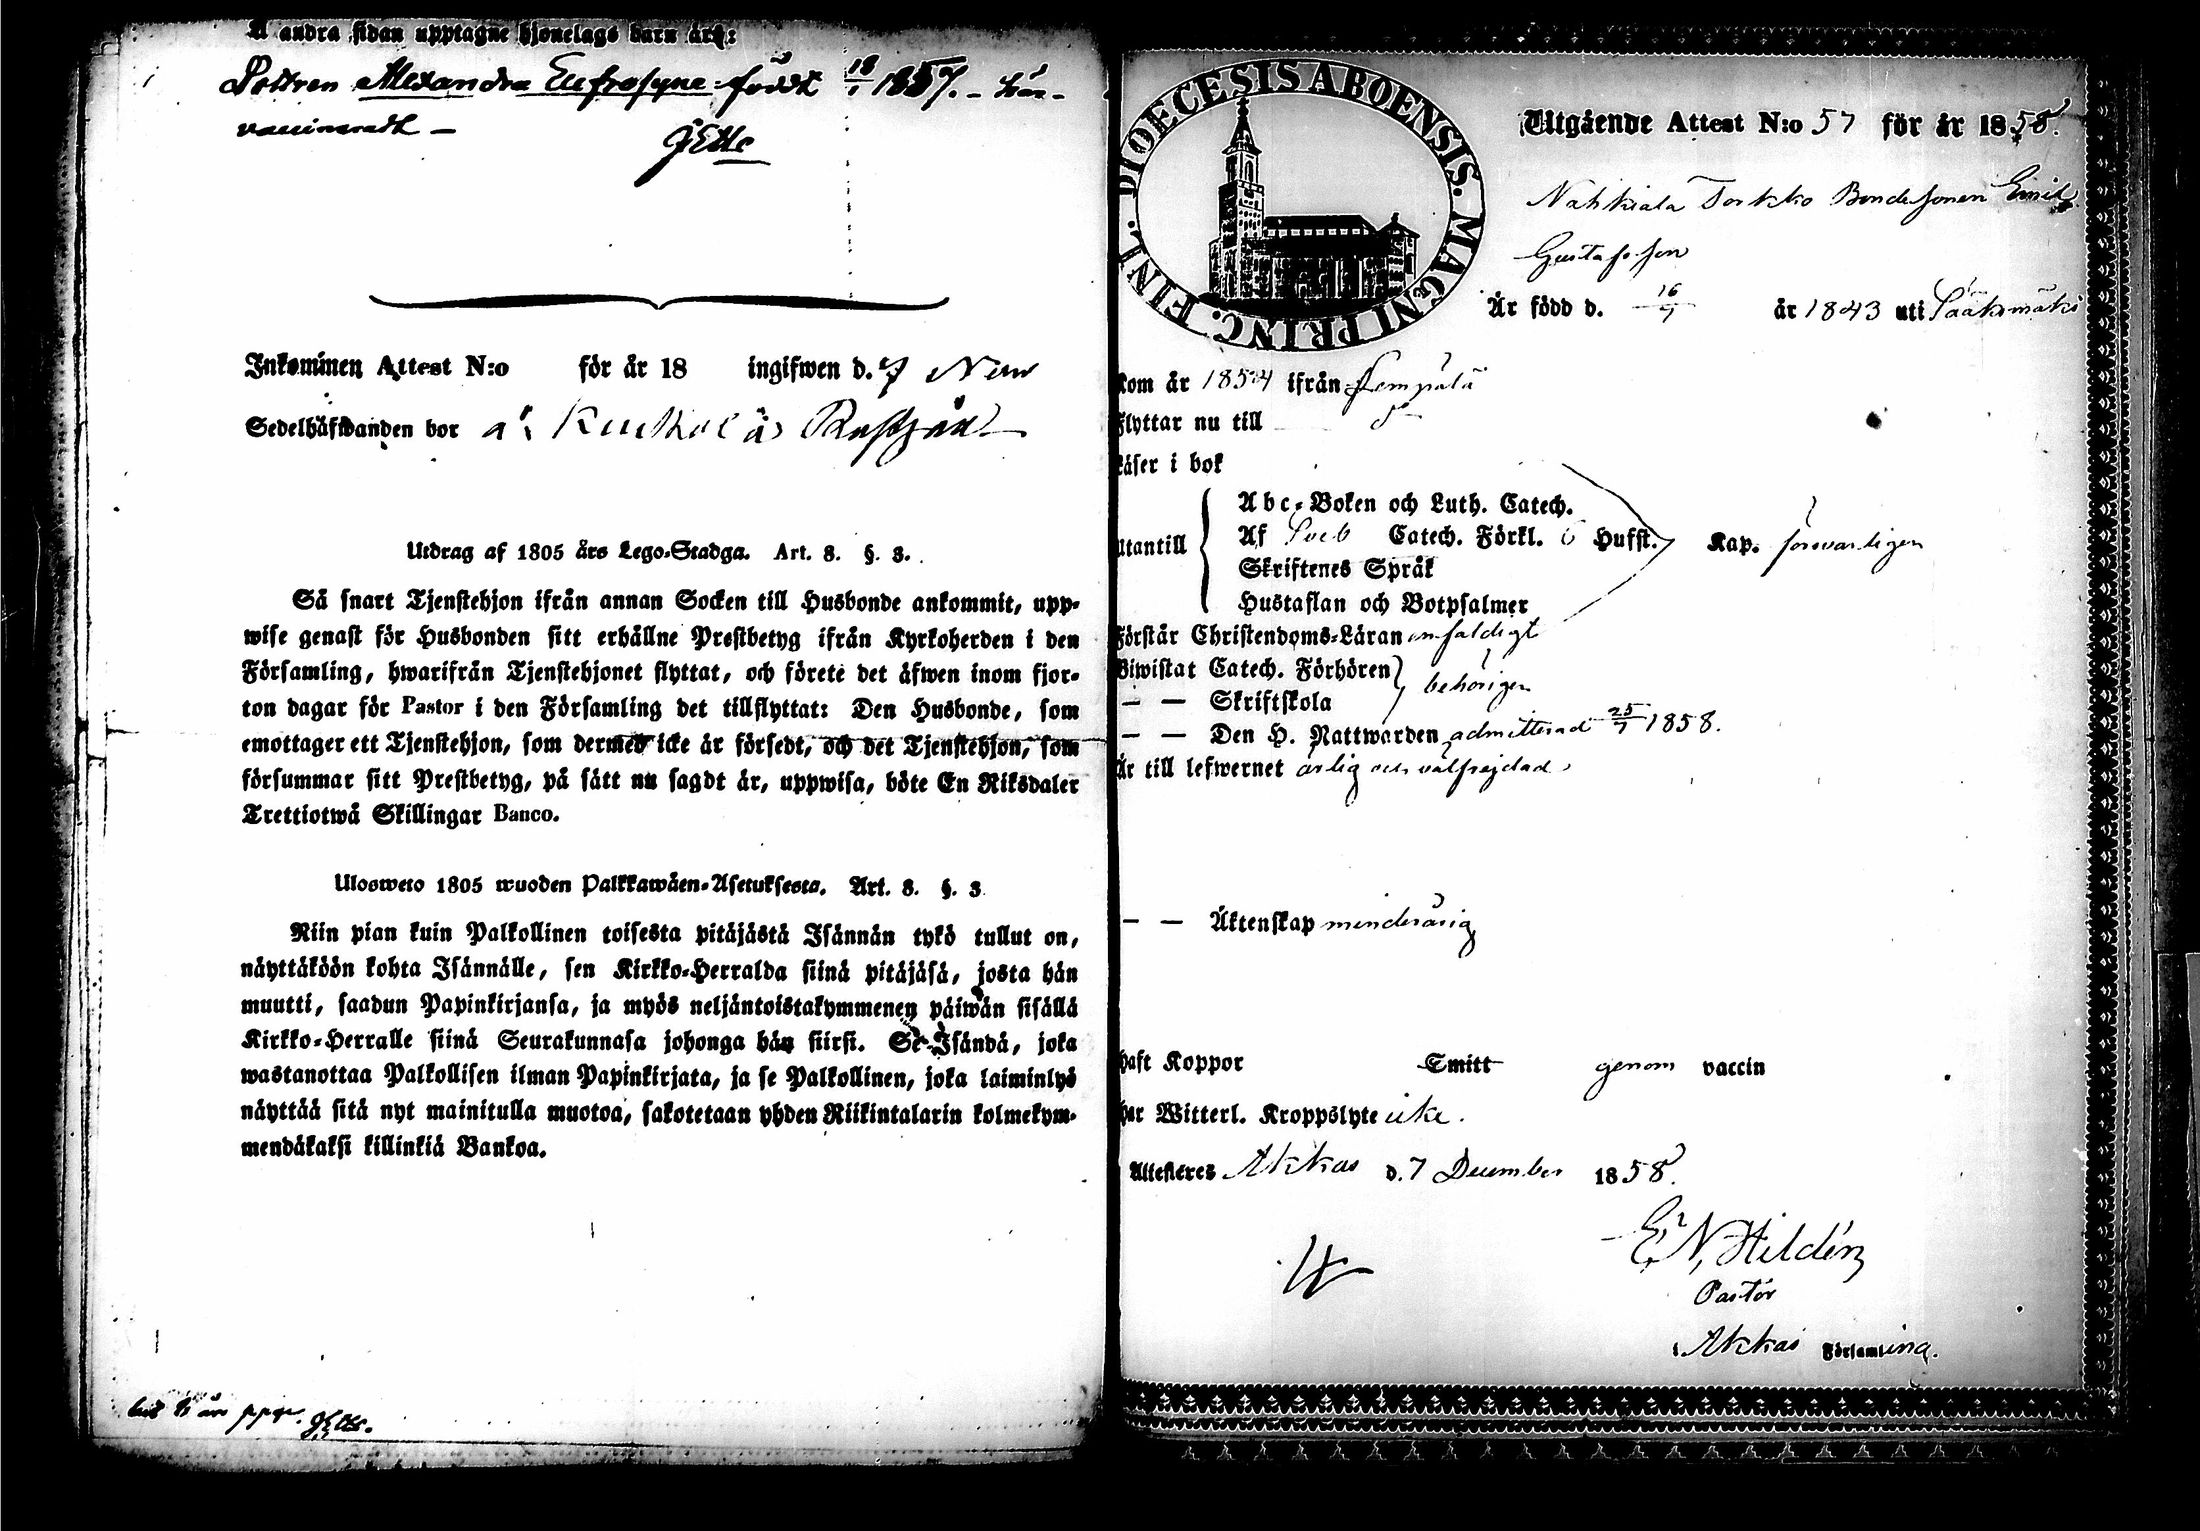 å andra sidan upptagne hjonelags barn äro:
Dottren Alexandra Eufrosyne född 18/1 1857. - är
vaccinerad -
Inkommen Attest N:o för år 18 ingifwen d. 7
Sedelhäfwanden bor
Utdrag af 1805 års Lego-Stadga. Art. 8. §. 3.
Så snart Tjenstehjon ifrån annan Socken till Husbonde ankommit, upp-
wise genast för Husbonden sitt erhållne Prestbetyg ifrån Kyrkoherden i den
Församling, hwarifrån Tjenstehjonet flyttat, och förete det äfwen inom fjor-
ton dagar för Pastor i den Församling det tillflyttat: Den Husbonde, som
emottager ett Tjenstehjon, som dermed icke är försedt, och det Tjenstehjon, som
försummar sitt Prestbetyg, på sätt nu sagdt är, uppwisa, böte En Riksdaler
Trettiotwå Skillingar Banco.
Ulosweto 1805 wuoden Palkkawäen-Asetuksesta. Art. 8. §. 3
Niin pian kuin Palkollinen toisesta pitäjästä Isännän tykö tullut on,
näyttäköön kohta Isännälle, sen Kirkko-Herralda siinä pitäjäsä, josta hän
muutti, saadun Papinkirjansa, ja myös neljäntoistakymmenen päiwän sisällä
Kirkko-Herralle siinä Seurakunnasa johonga hän siirsi. Se Isändä, joka
wastanottaa Palkollisen ilman Papinkirjata, ja se Palkollinen, joka laiminlyö
näyttää sitä nyt mainitulla muotoa, sakotetaan yhden Riikintalarin kolmekym-
mendäkaksi killinkiä Bankoa.
DIOECESIS ABOENSIS. MAGNI PRINC. FINL.
Utgående Attest N:o 57 för år 1858.
Nahkiala Torkko Bondesonen Emil
Gustafsson
Är född d. 16/7 år 1843 uti Sääksmäki
kom år 1854 ifrån Lempälä
Flyttar nu till d:o
Läser i bok
Utantill
Abc-Boken och Luth. Catech.
Af Sveb Catech. Förkl. 6 Hufst. Kap. försvarligen
Skriftenes Språk
Hustaflan och Botpsalmer
Förstår Christendoms-Läran enfaldigt
Biwistat Catech. Förhören behörigen
— — Skriftskola
— — Den H. Nattwarden admitterad 25/7 1858.
Är till lefwernet ärlig och välfrejdad
— — Äktenskap minderårig
haft Koppor Smitt genom vaccin
har Witterl. Kroppslyte icke.
Attesteras Akkas d. 7 December 1858.
E. N. Hildén
Pastor
i Akkas Församling.